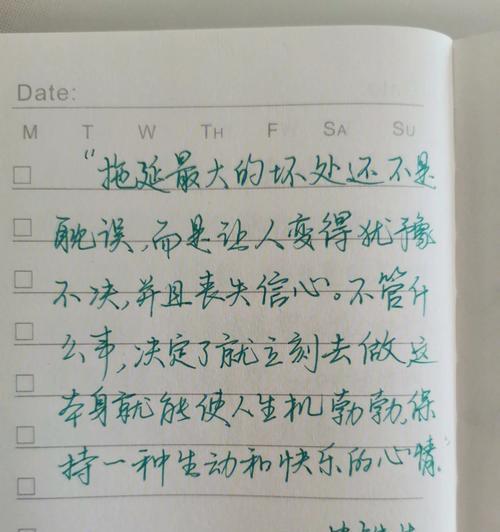 Date:
M T W TH F SA SU
“拖延最大的坏处还不是
耽误,而是让人变得犹豫
不决,并且丧失信心。不管什
么事,决定了就立刻去做,这
本身就能使人生机勃勃,保
持一种生动和快乐的心情。”